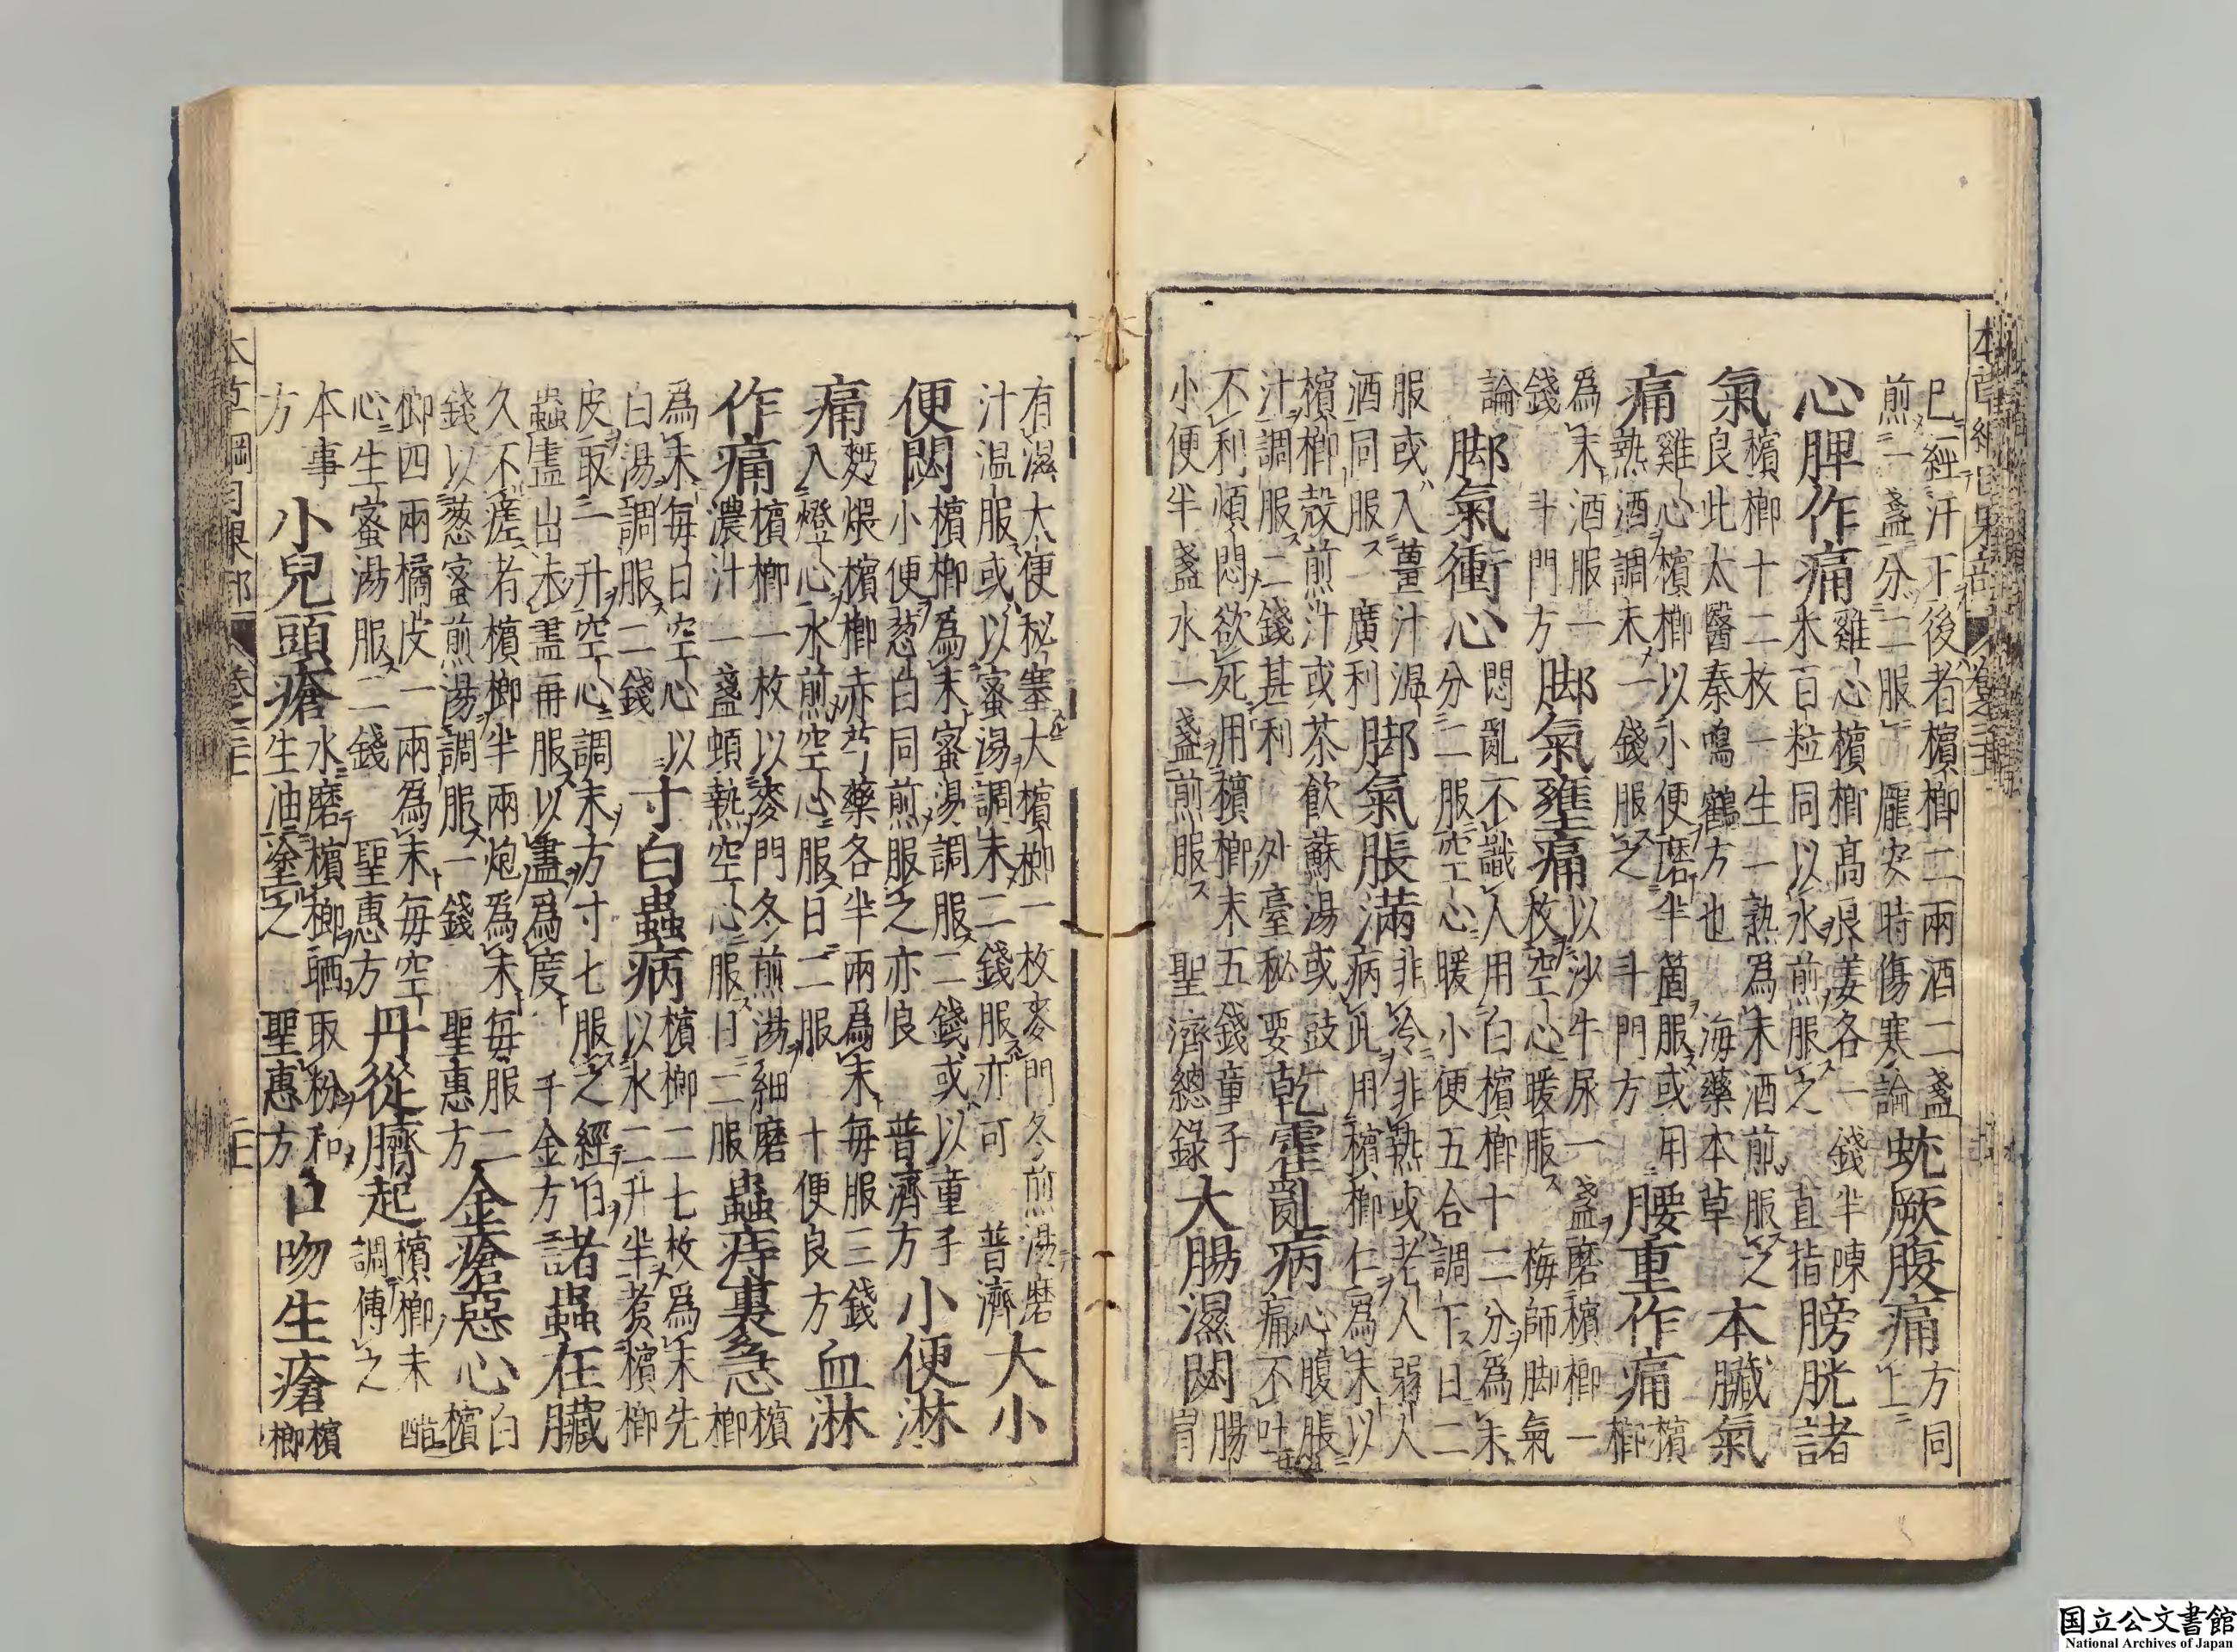 本草綱目果部 卷三十一
已經汗下後者檳榔二兩酒二盞
煎一盞分二服 龐安時傷寒論
蚘厥腹痛
方同
上
心脾作痛
雞心檳榔高良姜各一錢半陳
米百粒同以水煎服之 直指
膀胱諸
氣
檳榔十二枚一生一熟為末酒煎服之
良此太醫秦鳴鶴方也 海藥本草
本臟氣
痛
雞心檳榔以小便磨半箇服或用
熱酒調末一錢服之 斗門方
腰重作痛
檳
榔
為末酒服一
錢 斗門方
脚氣壅痛
以沙牛尿一盞磨檳榔一
枚空心暖服 梅師脚氣
論
脚氣衝心
悶亂不識人用白檳榔十二分為末
分二服空心暖小便五合調下日二
服或入薑汁温
酒同服 廣利
脚氣脹滿
非冷非熱或老人弱人
病此用檳榔仁為末以
檳榔殼煎汁或茶飲蘇湯或豉
汁調服二錢甚利 外臺秘要
乾霍亂病
心腹脹
痛不吐
不利煩悶欲死用檳榔末五錢童子
小便半盞水一盞煎服 聖濟總錄
大腸濕閟
腸
胃
有濕大便秘塞大檳榔一枚麥門冬煎湯磨
汁温服或以蜜湯調末二錢服亦可 普濟
大小
便閟
檳榔為末蜜湯調服二錢或以童子
小便葱白同煎服之亦良 普濟方
小便淋
痛
麪煨檳榔赤芍藥各半兩為末每服三錢
入燈心水煎空心服日二服 十便良方
血淋
作痛
檳榔一枚以麥門冬煎湯細磨
濃汁一盞頓熱空心服日二服
蟲痔裏急
檳
榔
為末每日空心以
白湯調服二錢
寸白蟲病
檳榔二七枚為末先
以水二升半煑檳榔
皮取一升空心調末方寸七服之經日
蟲盡出未盡再服以盡為度 千金方
諸蟲在臟
久不瘥者檳榔半兩炮為末每服二
錢以葱蜜煎湯調服一錢 聖惠方
金瘡惡心
白
檳
榔四兩橘皮一兩為末每空
心生蜜湯服二錢 聖惠方
丹從臍起
檳榔末 醋
調傅之
本事
方
小兒頭瘡
水磨檳榔晒取粉和
生油塗之 聖惠方
口吻生瘡
檳
榔
本草綱目果部 卷三十一
国立公文書館
National Archives of Japan